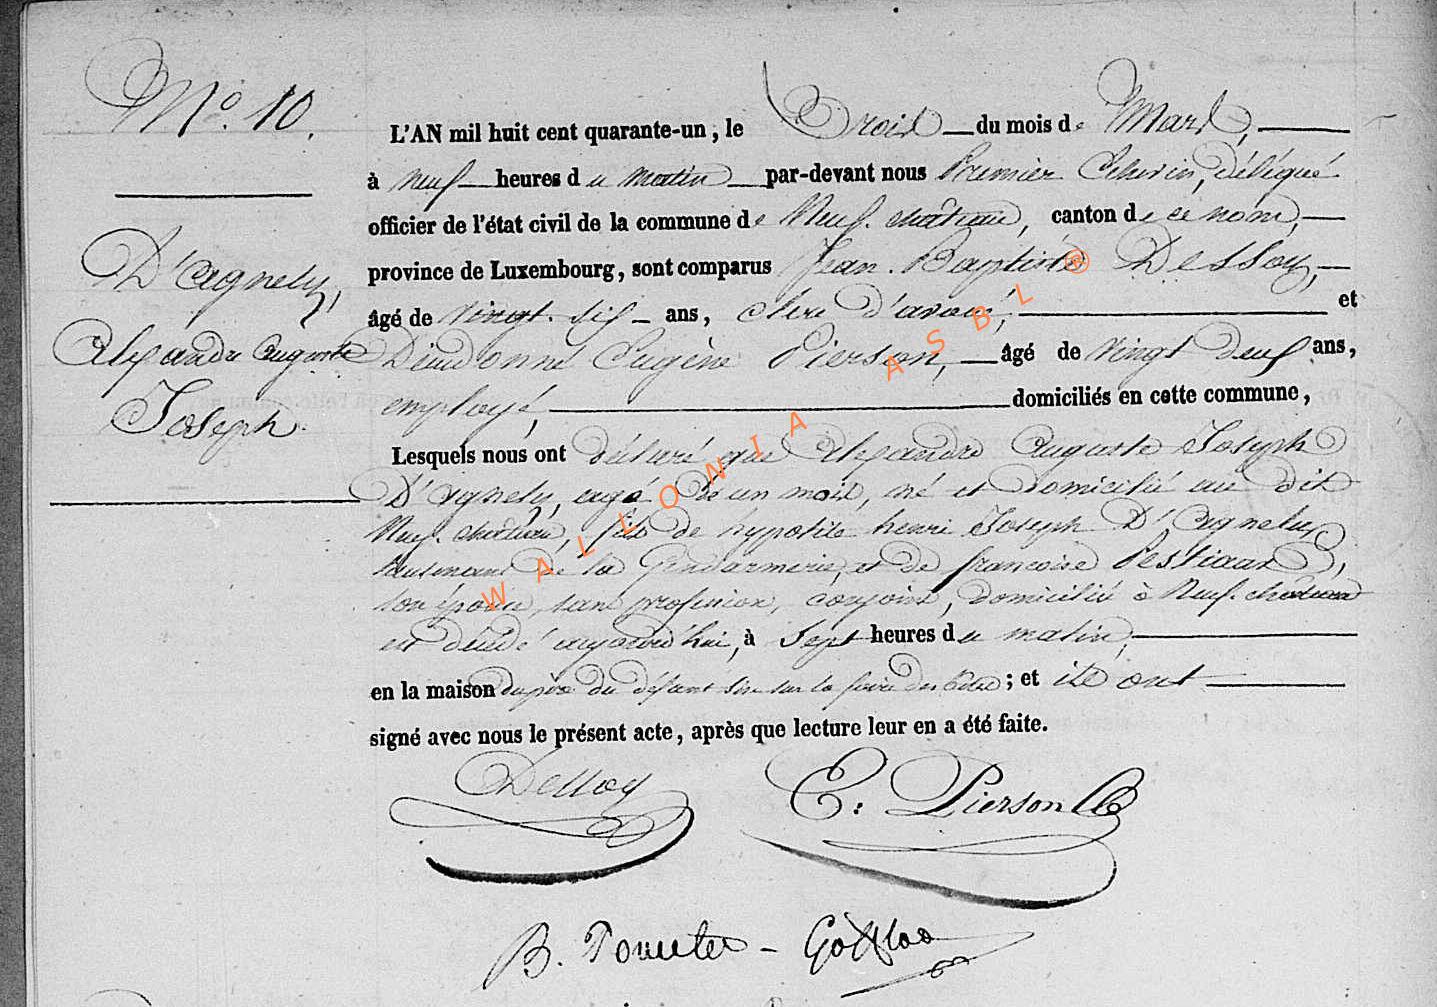 N.º 10.
D'Agnely,
Alexandre Auguste
Joseph.
L'AN mil huit cent quarante-un, le Trois du mois de Mars,
à neuf heures du matin par-devant nous Premier Echevin, délégué
officier de l'état civil de la commune de Neuf-château, canton de ce nom,
province de Luxembourg, sont comparus Jean-Baptiste Dessoy,
âgé de vingt-six ans, clerc d'avoué, et
Dieudonné Eugène Pierson, âgé de vingt deux ans,
employé, domiciliés en cette commune,
Lesquels nous ont déclaré que Alexandre Auguste Joseph
D'Agnely, agé de un mois, né et domicilié au dit
Neuf-château, fils de hypolite henri Joseph D'Agnely,
lieutenant de la Gendarmerie, et de francoise Pestiaux,
son épouse, sans profession, conjoints, domicilié à Neuf-château
est décédé aujourd'hui, à sept heures du matin,
en la maison du père du défunt sise sur la ; et ils ont
signé avec nous le présent acte, après que lecture leur en a été faite.
Dessoy
E: Pierson
B.
WALLONIA ASBL ®